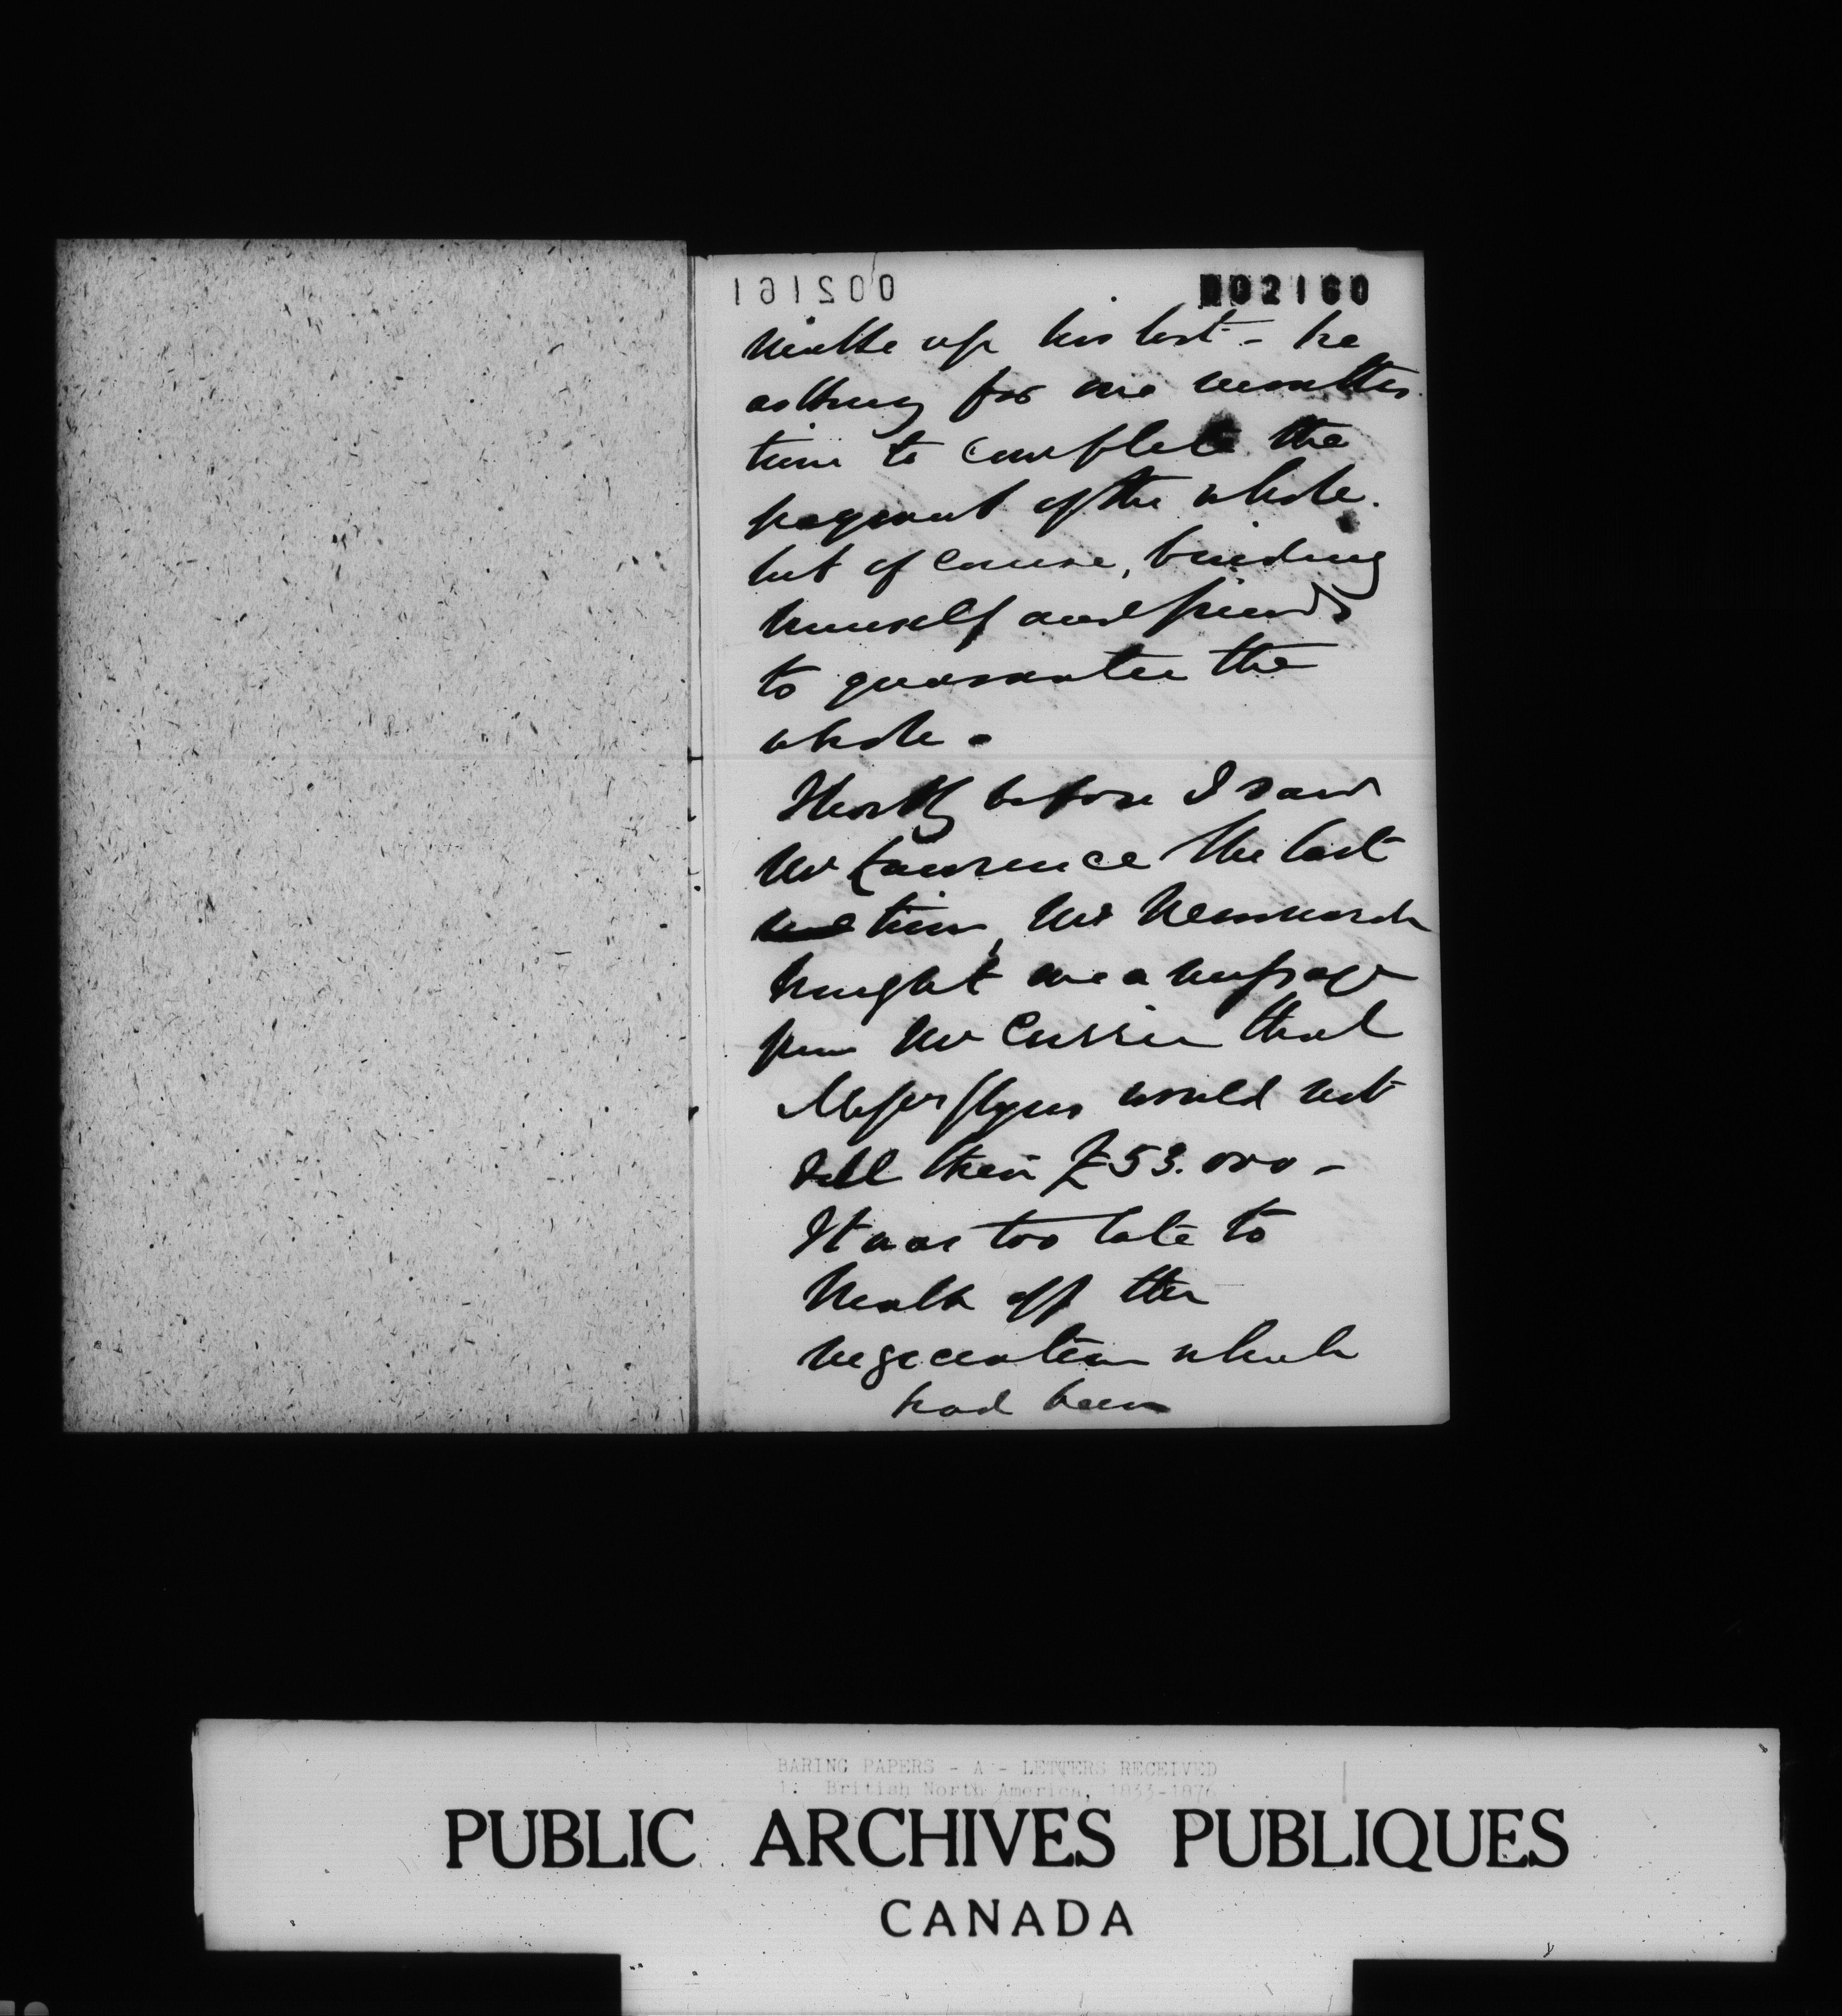 002161 002160
make up his list - he
asking for one months
time to complete the
payment of the whole.
but of course, binding
himself and friends
to guarantee the
whole.
Shortly before I saw
Mr Lawrence the last
time, Mr
brought me a message
from Mr Currie that
Messrs Glyns would not
sell their £53.000 -
It was too late to
break off the
negociation which
had been
BARING PAPERS - A - LETTERS RECEIVED
1: British North America, 1833-1876
PUBLIC ARCHIVES PUBLIQUES
CANADA